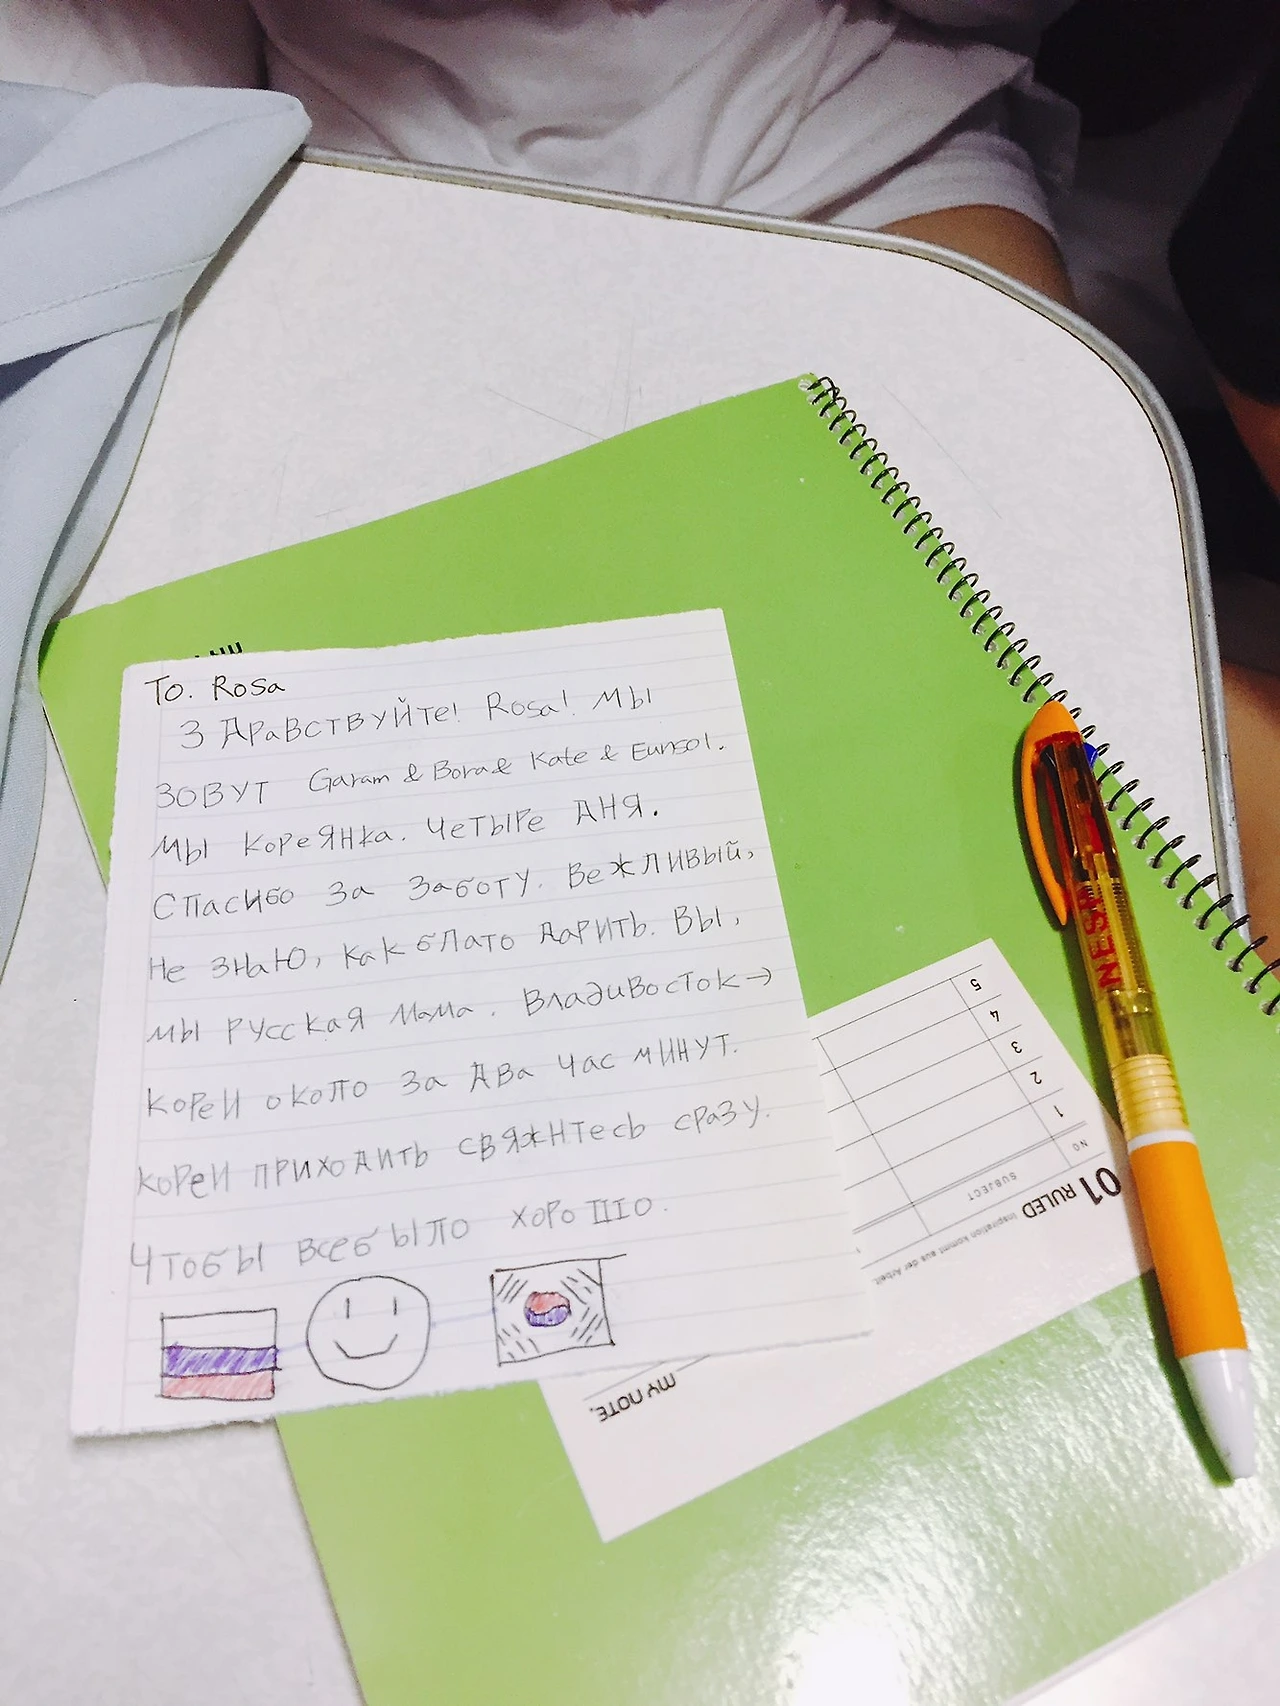 To. Rosa
Здравствуйте! Rosa! мы
зовут Garam & Bora & Kate & Eunsol.
мы кореянка. четыре дня.
спасибо за заботу. Вежливый,
не знаю, как блато дарить. Вы,
мы русская мама. Владивосток→
корей около за два час минут.
корей приходить свяжнтесь сразу.
чтобы всебыло хорошо.
5
4
3
2
1
NO SUBJECT
01 RULED Inspiration kommt aus der Arbeit.
MY NOTE.